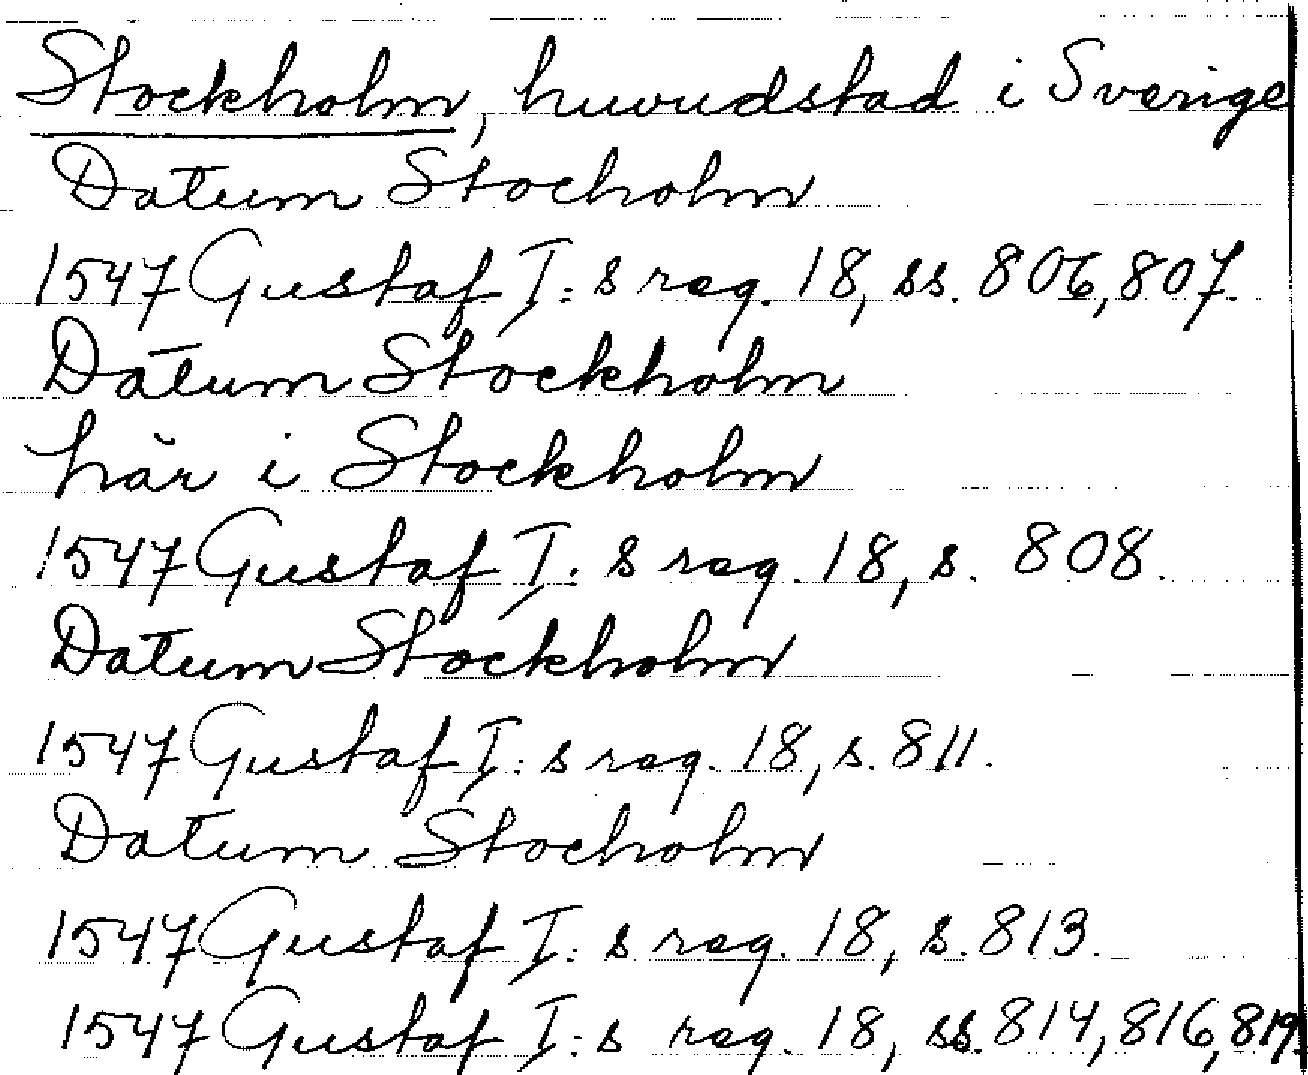 Stockholm, huvudstad i Sverige
Datum Stocholm
1547 Gustaf I:s reg. 18, ss. 806, 807.
Datum Stockholm
här i Stockholm
1547 Gustaf I:s reg. 18, s. 808.
Datum Stockholm
1547 Gustaf I:s reg. 18, s. 811.
Datum Stocholm
1547 Gustaf I:s reg. 18, s. 813.
1547 Gustaf I:s reg. 18, ss. 814, 816, 819.